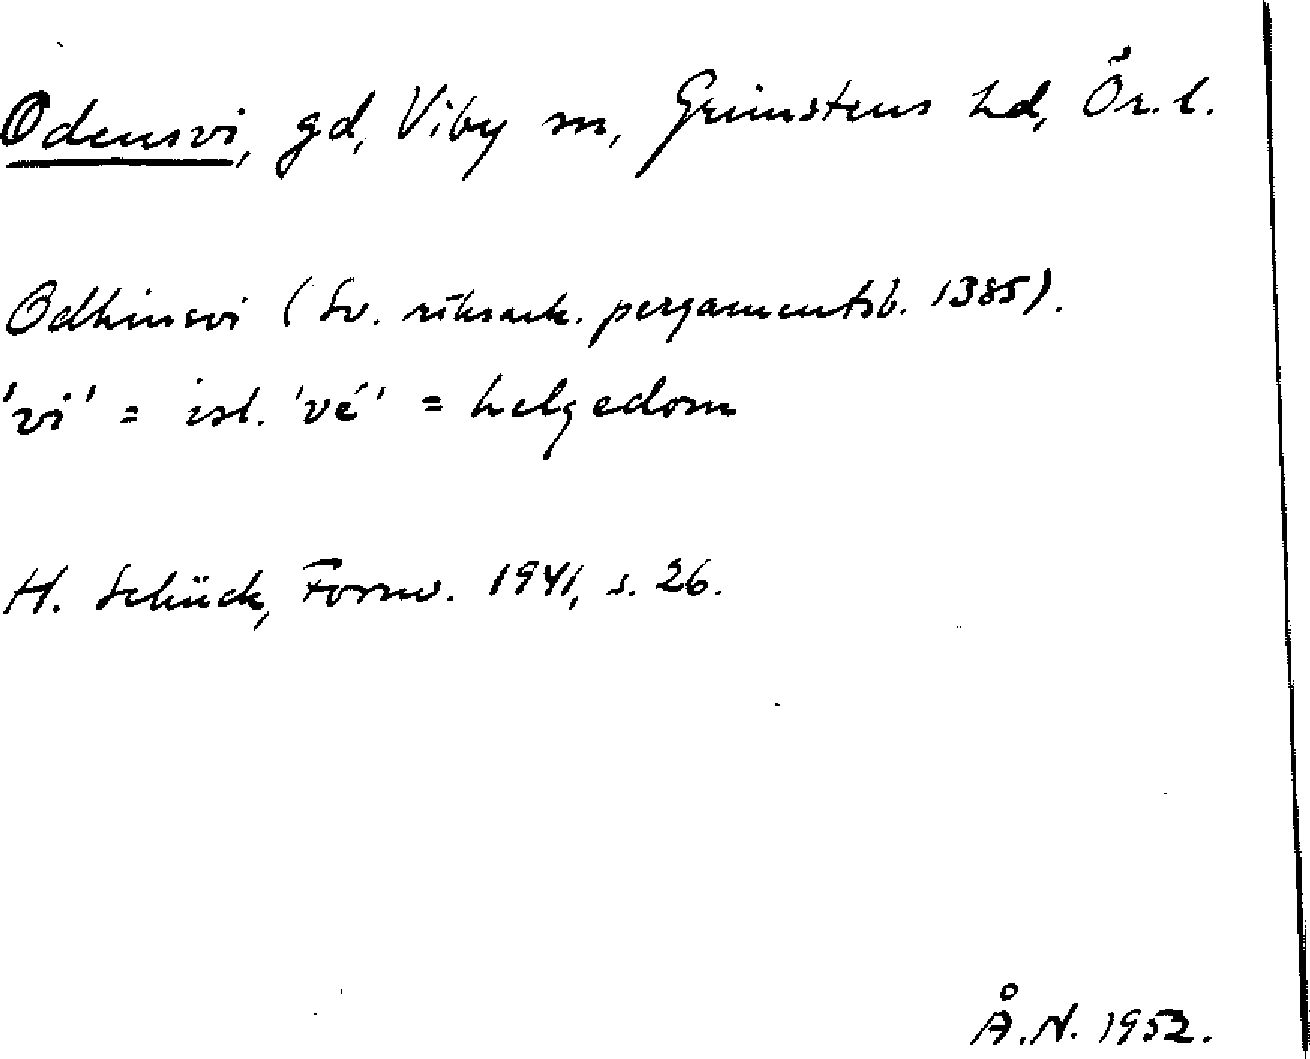 Odensvi, gd, Viby sn, Grimstens hd, Ör. l.
Odhinsvi (Sv. riksark. pergamentsb. 1385).
'vi' = isl. 'vé' = helgedom
H. Schück, Fornv. 1941, s. 26.
Å.N. 1952.